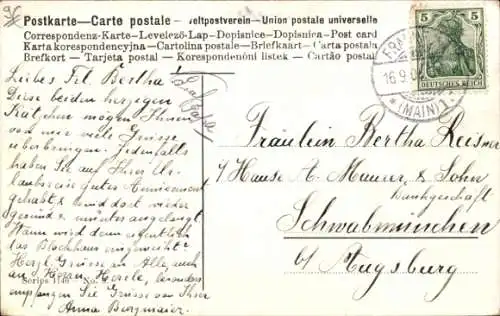 Postkarte—Carte postale — Weltpostverein—Union postale universelle
Correspondenz-Karte—Levelező-Lap—Dopisnice—Dopisnica—Post card
Karta korespondencyjna—Cartolina postale—Briefkaart—Carta postala
Brefkort — Tarjeta postal — Korespondenční listek — Cartão postal
5 5
DEUTSCHES REICH
16.9.0
*(MAIN)1
Liebes Frl. Bertha!
Diese beiden herzigen
mögen Ihnen
von mir viele Grüsse
überbringen. Jedenfalls
haben Sie auf Ihrer Ur-
laubsreise gutes Amüsement
gehabt & sind dort wieder
gesund & munter angelangt.
Wann wird denn eigentlich
das Blockhaus eingeweiht?
Herzl. Grüsse an Alle, auch
an Herrn besonders
empfangen Sie Grüsse von Ihrer
Anna
Series 1146 — No.
Fräulein Bertha
p/ Hause A. Maurer & Sohn
Schwabmünchen
b/ Augsburg